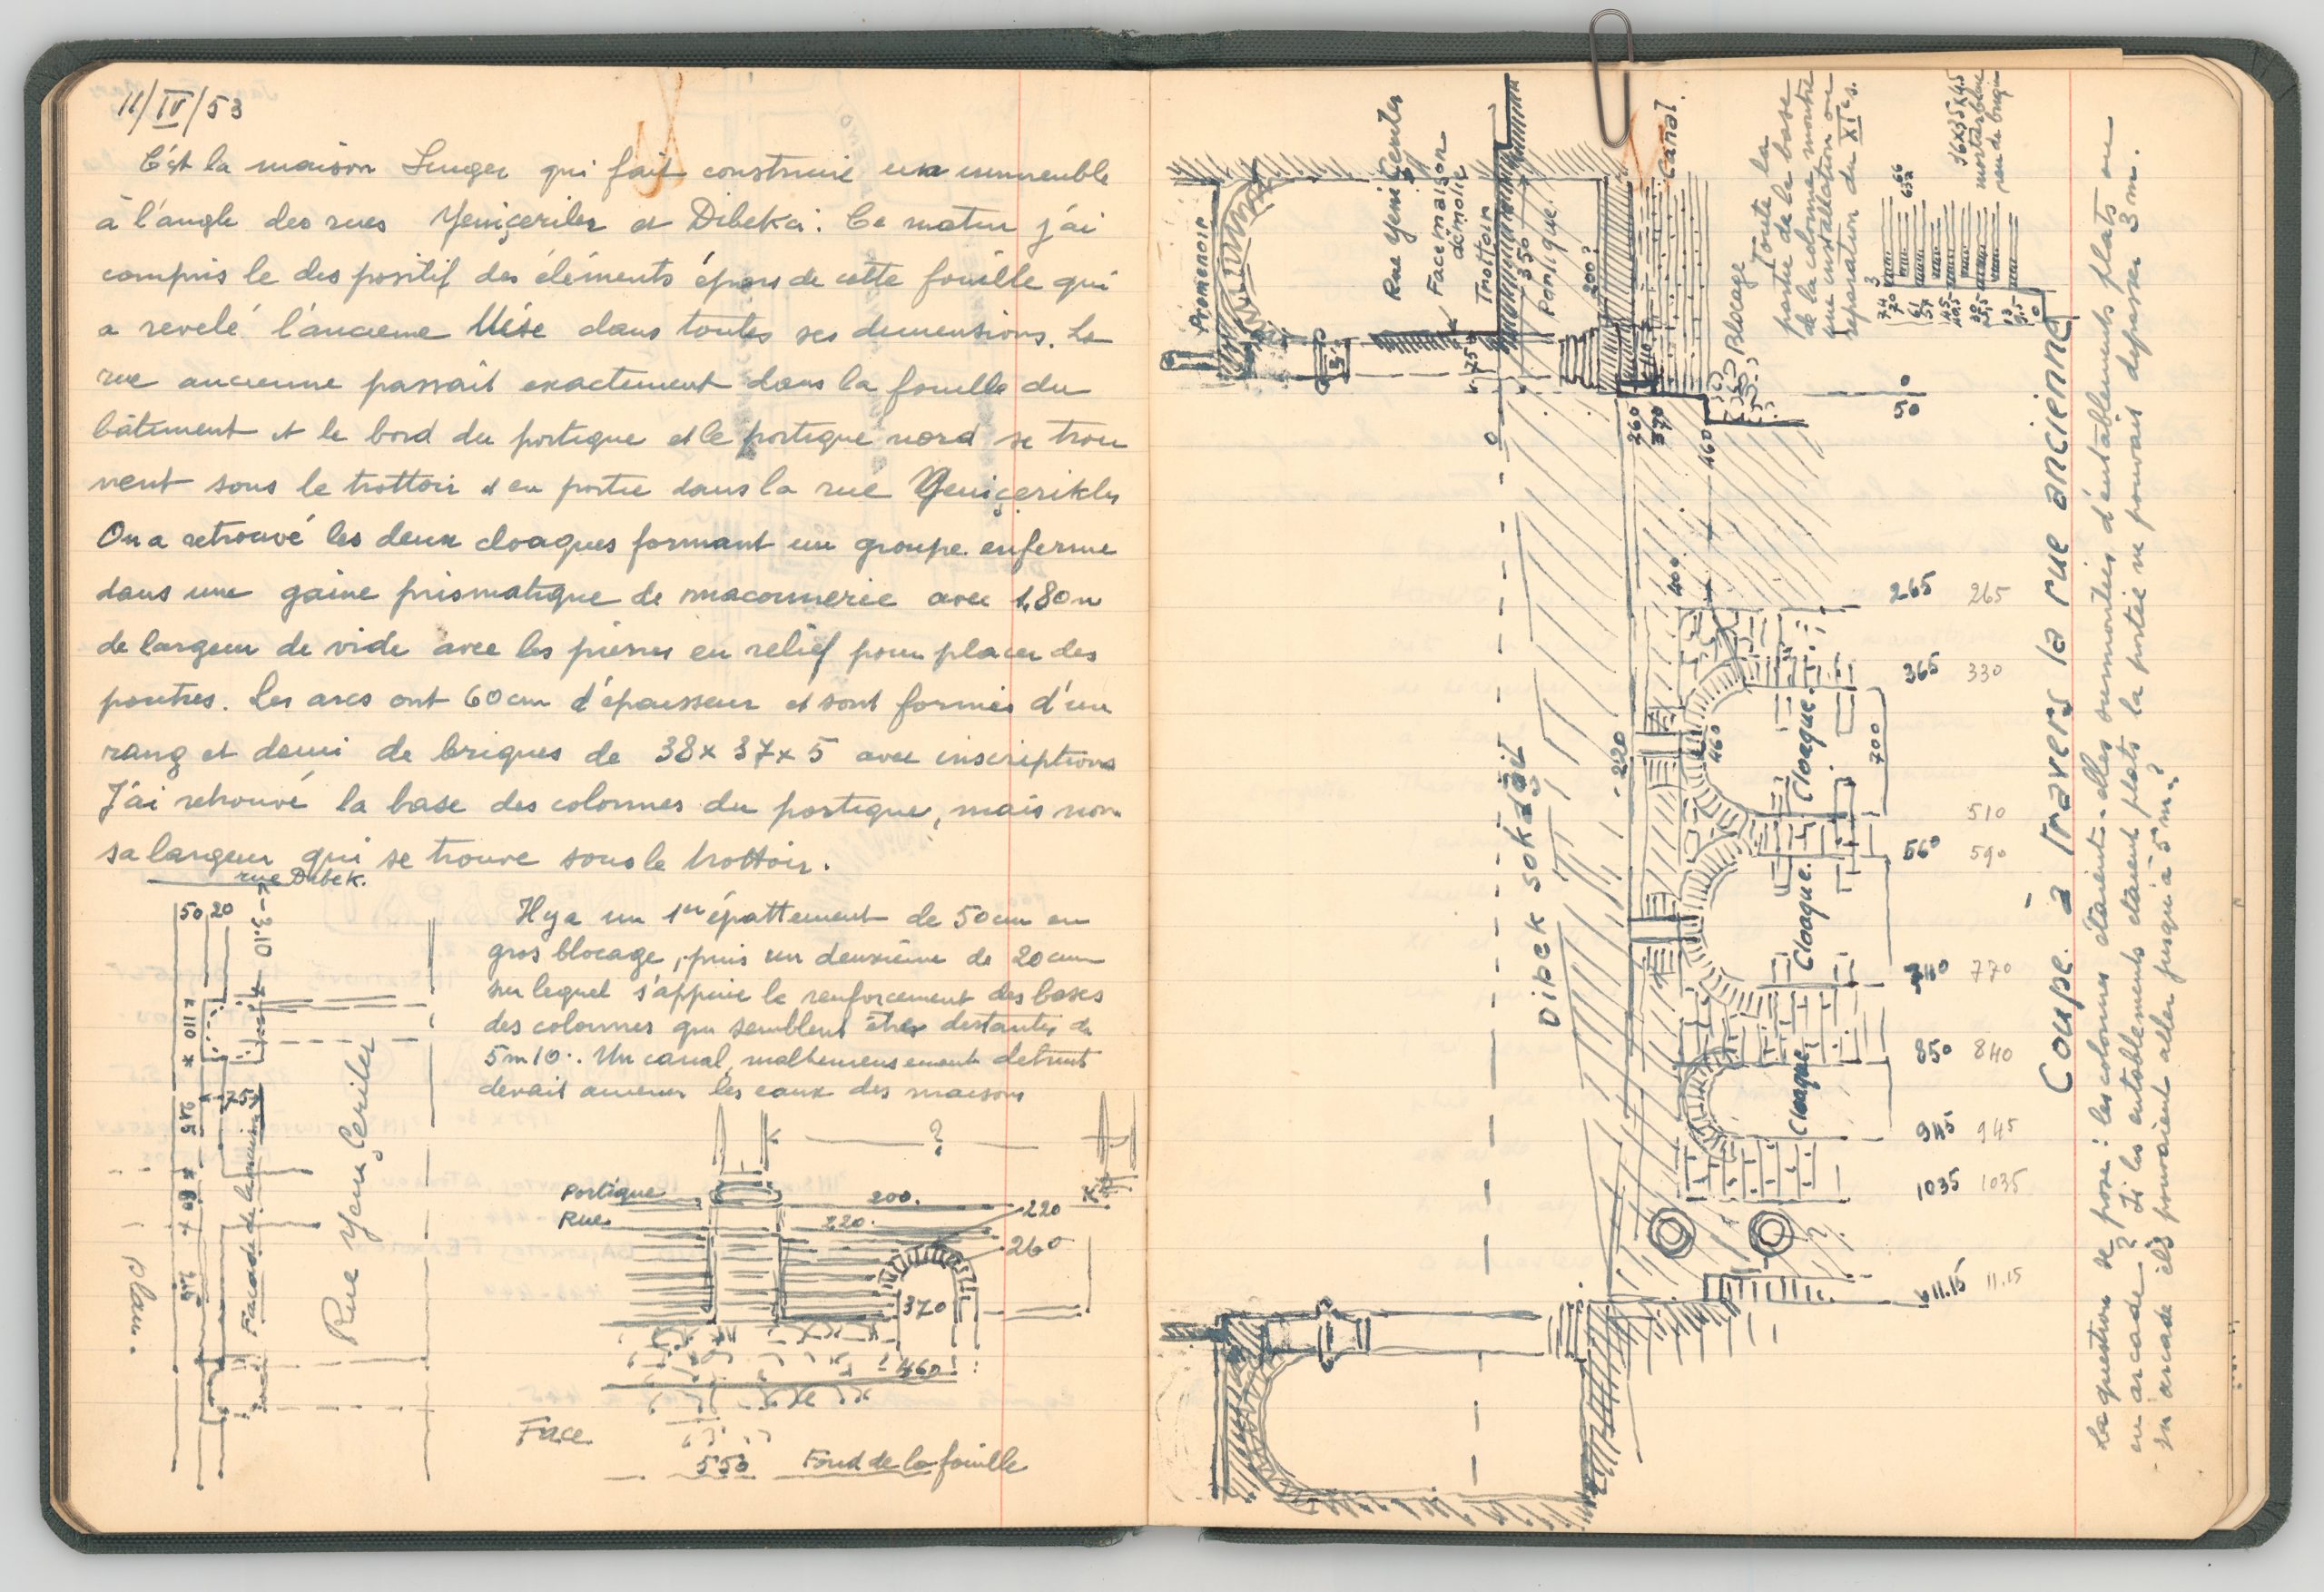 11/IV/53
C'est la maison Singer qui fait construire un immeuble
à l'angle des rues Yeniçeriler et Dibekci. Ce matin j'ai
compris le des positif des éléments épars de cette fouille qui
a revelé l'ancienne Mése dans toutes ses dimensions. La
rue ancienne passait exactement dans la fouille du
bâtiment et le bord du portique et le portique nord se trou
vent sous le trottoir et en partie dans la rue Yenicerikler
On a retrouvé les deux cloaques formant un groupe enferme
dans une gaine prismatique de maconnerie avec 1,80 m
de largeur de vide avec les pierres en relief pour placer des
poutres. Les arcs ont 60 cm d'épaisseur et sont formés d'un
rang et demi de briques de 38x37x5 avec inscriptions
J'ai retrouvé la base des colonnes du portique, mais non
sa largeur qui se trouve sous le trottoir.
rue Dibek.
50 20
3.10
110
75
245
60
Facade de la maison
Rue Yeni Ceriler
plan.
Il y a un 1er épattement de 50 cm en
gros blocage, puis un deuxième de 20 cm
sur lequel s'appuie le renforcement des bases
des colonnes qui semblent être distantes de
5m10. Un canal, malheureusement detruit
devait amener les eaux des maisons
?
Portique
Rue
200.
220.
220
260
370
460
Face
550 Fond de la fouille
Promenoir
Rue Yeni Ceriler
Face maison
démolie
Trottoir
350
Portique.
200?
75
110
Canal.
Blocage
Toute la
partie de la base
de la colonne montre
une installation ou
reparation du XIe s.
36x35x4.5
mortier bleu
peu de brique
0
260
370
460
50
0
Dibek sokağı
220
400
460
Cloaque.
Cloaque.
Cloaque
700
265 265
365 330
510
560 590
740 770
850 840
945 945
1035 1035
11.15 11.15
Coupe à travers la rue ancienne
La question se pose: les colonnes étaient-elles surmontées d'entablements plats ou
en arcade? Si les entablements étaient plats la portée ne pouvait depasser 3m.
- En arcade ils pouvaient aller jusqu'à 5m?